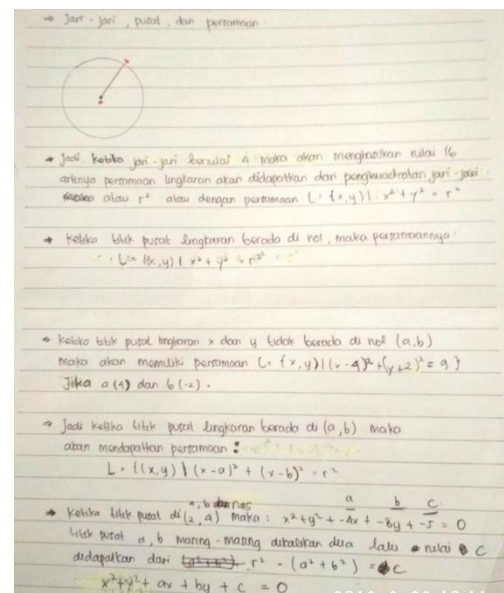 → Jari-jari, pusat, dan persamaan
→ Jadi, ketika jari-jari bernilai 4 maka akan menghasilkan nilai 16
artinya persamaan lingkaran akan didapatkan dari pengkuadratan jari-jari
atau r² atau dengan persamaan L = {x,y) | x² + y² = r²
→ Ketika titik pusat lingkaran berada di nol, maka persamaannya:
L = {(x,y) | x² + y² = r²
→ Ketika titik pusat lingkaran x dan y tidak berada di nol (a,b)
maka akan memiliki persamaan L = {x,y) | (x-4)² + (y+2)² = 9}
Jika a (4) dan b (-2).
→ Jadi ketika titik pusat lingkaran berada di (a,b) maka
akan mendapatkan persamaan :
L = {(x,y) | (x-a)² + (x-b)² = r²
a b c
→ Ketika titik pusat di (2,4) maka : x² + y² + -4x + -8y + -5 = 0
titik pusat a, b masing-masing dikalikan dua lalu nilai C
didapatkan dari r² - (a² + b²) = C
x² + y² + ax + by + c = 0